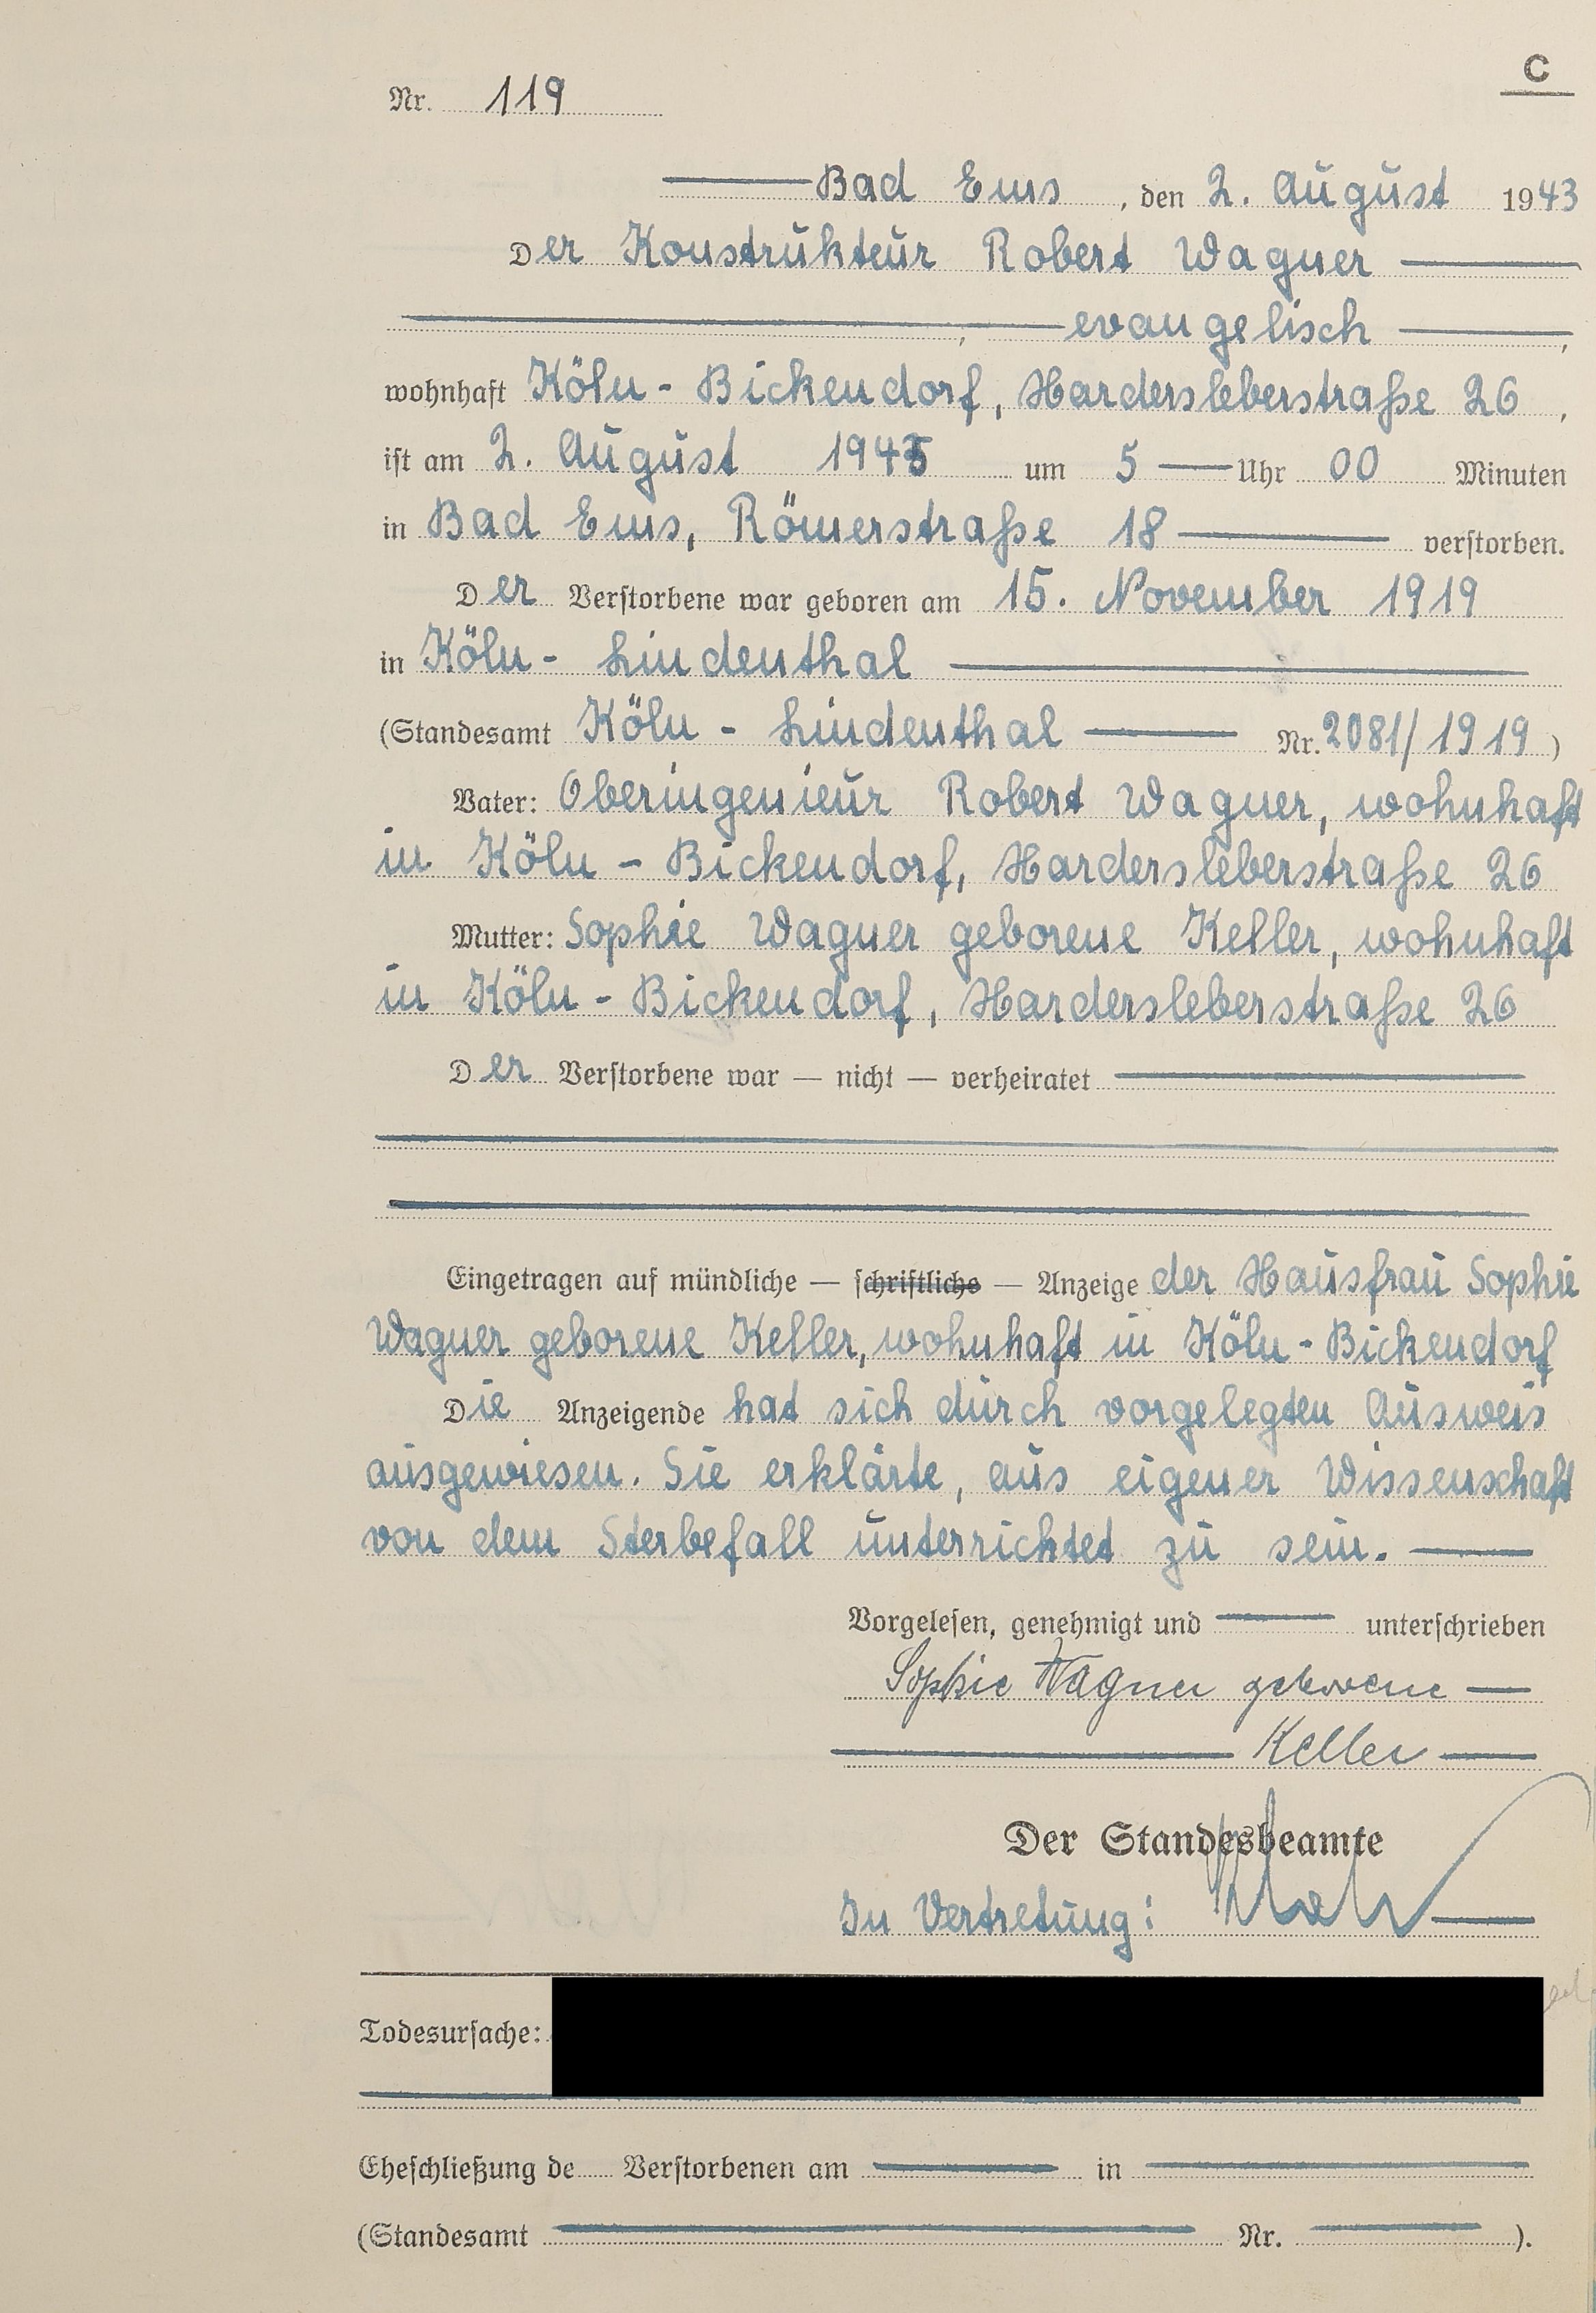 C
Nr. 119
Bad Ems, den 2. August 1943
Der Konstrukteur Robert Wagner
, evangelisch,
wohnhaft Köln - Bickendorf, Hardersleberstraße 26,
ist am 2. August 1943 um 5 Uhr 00 Minuten
in Bad Ems, Römerstraße 18 verstorben.
Der Verstorbene war geboren am 15. November 1919
in Köln - Lindenthal
(Standesamt Köln - Lindenthal Nr. 2081/1919)
Vater: Oberingenieur Robert Wagner, wohnhaft
in Köln - Bickendorf, Hardersleberstraße 26
Mutter: Sophie Wagner geborene Keller, wohnhaft
in Köln - Bickendorf, Hardersleberstraße 26
Der Verstorbene war — nicht — verheiratet
Eingetragen auf mündliche — schriftliche — Anzeige der Hausfrau Sophie
Wagner geborene Keller, wohnhaft in Köln - Bickendorf
Die Anzeigende hat sich durch vorgelegten Ausweis
ausgewiesen. Sie erklärte, aus eigener Wissenschaft
von dem Sterbefall unterrichtet zu sein.
Vorgelesen, genehmigt und unterschrieben
Sophie Wagner geborene
Keller
Der Standesbeamte
In Vertretung:
Todesursache:
Eheschließung de Verstorbenen am in
(Standesamt Nr. ).